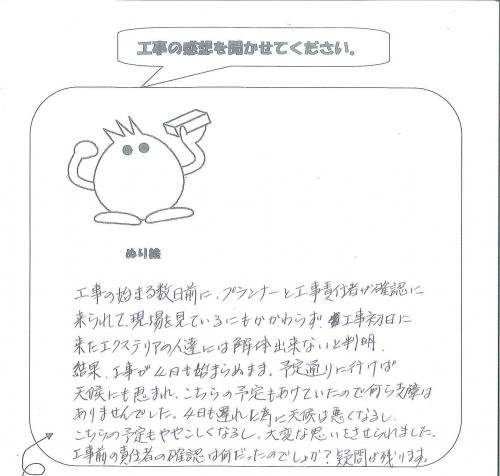 工事の感想を聞かせてください。
ぬり絵
工事の始まる数日前に、プランナーと工事責任者が確認に
来られて、現場を見ているにもかかわらず、工事初日に
来たエクステリアの人達には解体出来ないと判明。
結果、工事が4日も始まらぬまま。予定通りに行けば
天候にも恵まれ、こちらの予定もあけていたので何ら支障は
ありませんでした。4日も遅れた為に天候は悪くなるし、
こちらの予定もややこしくなるし、大変な思いをさせられました。
工事前の責任者の確認は何だったのでしょうか?疑問が残ります。